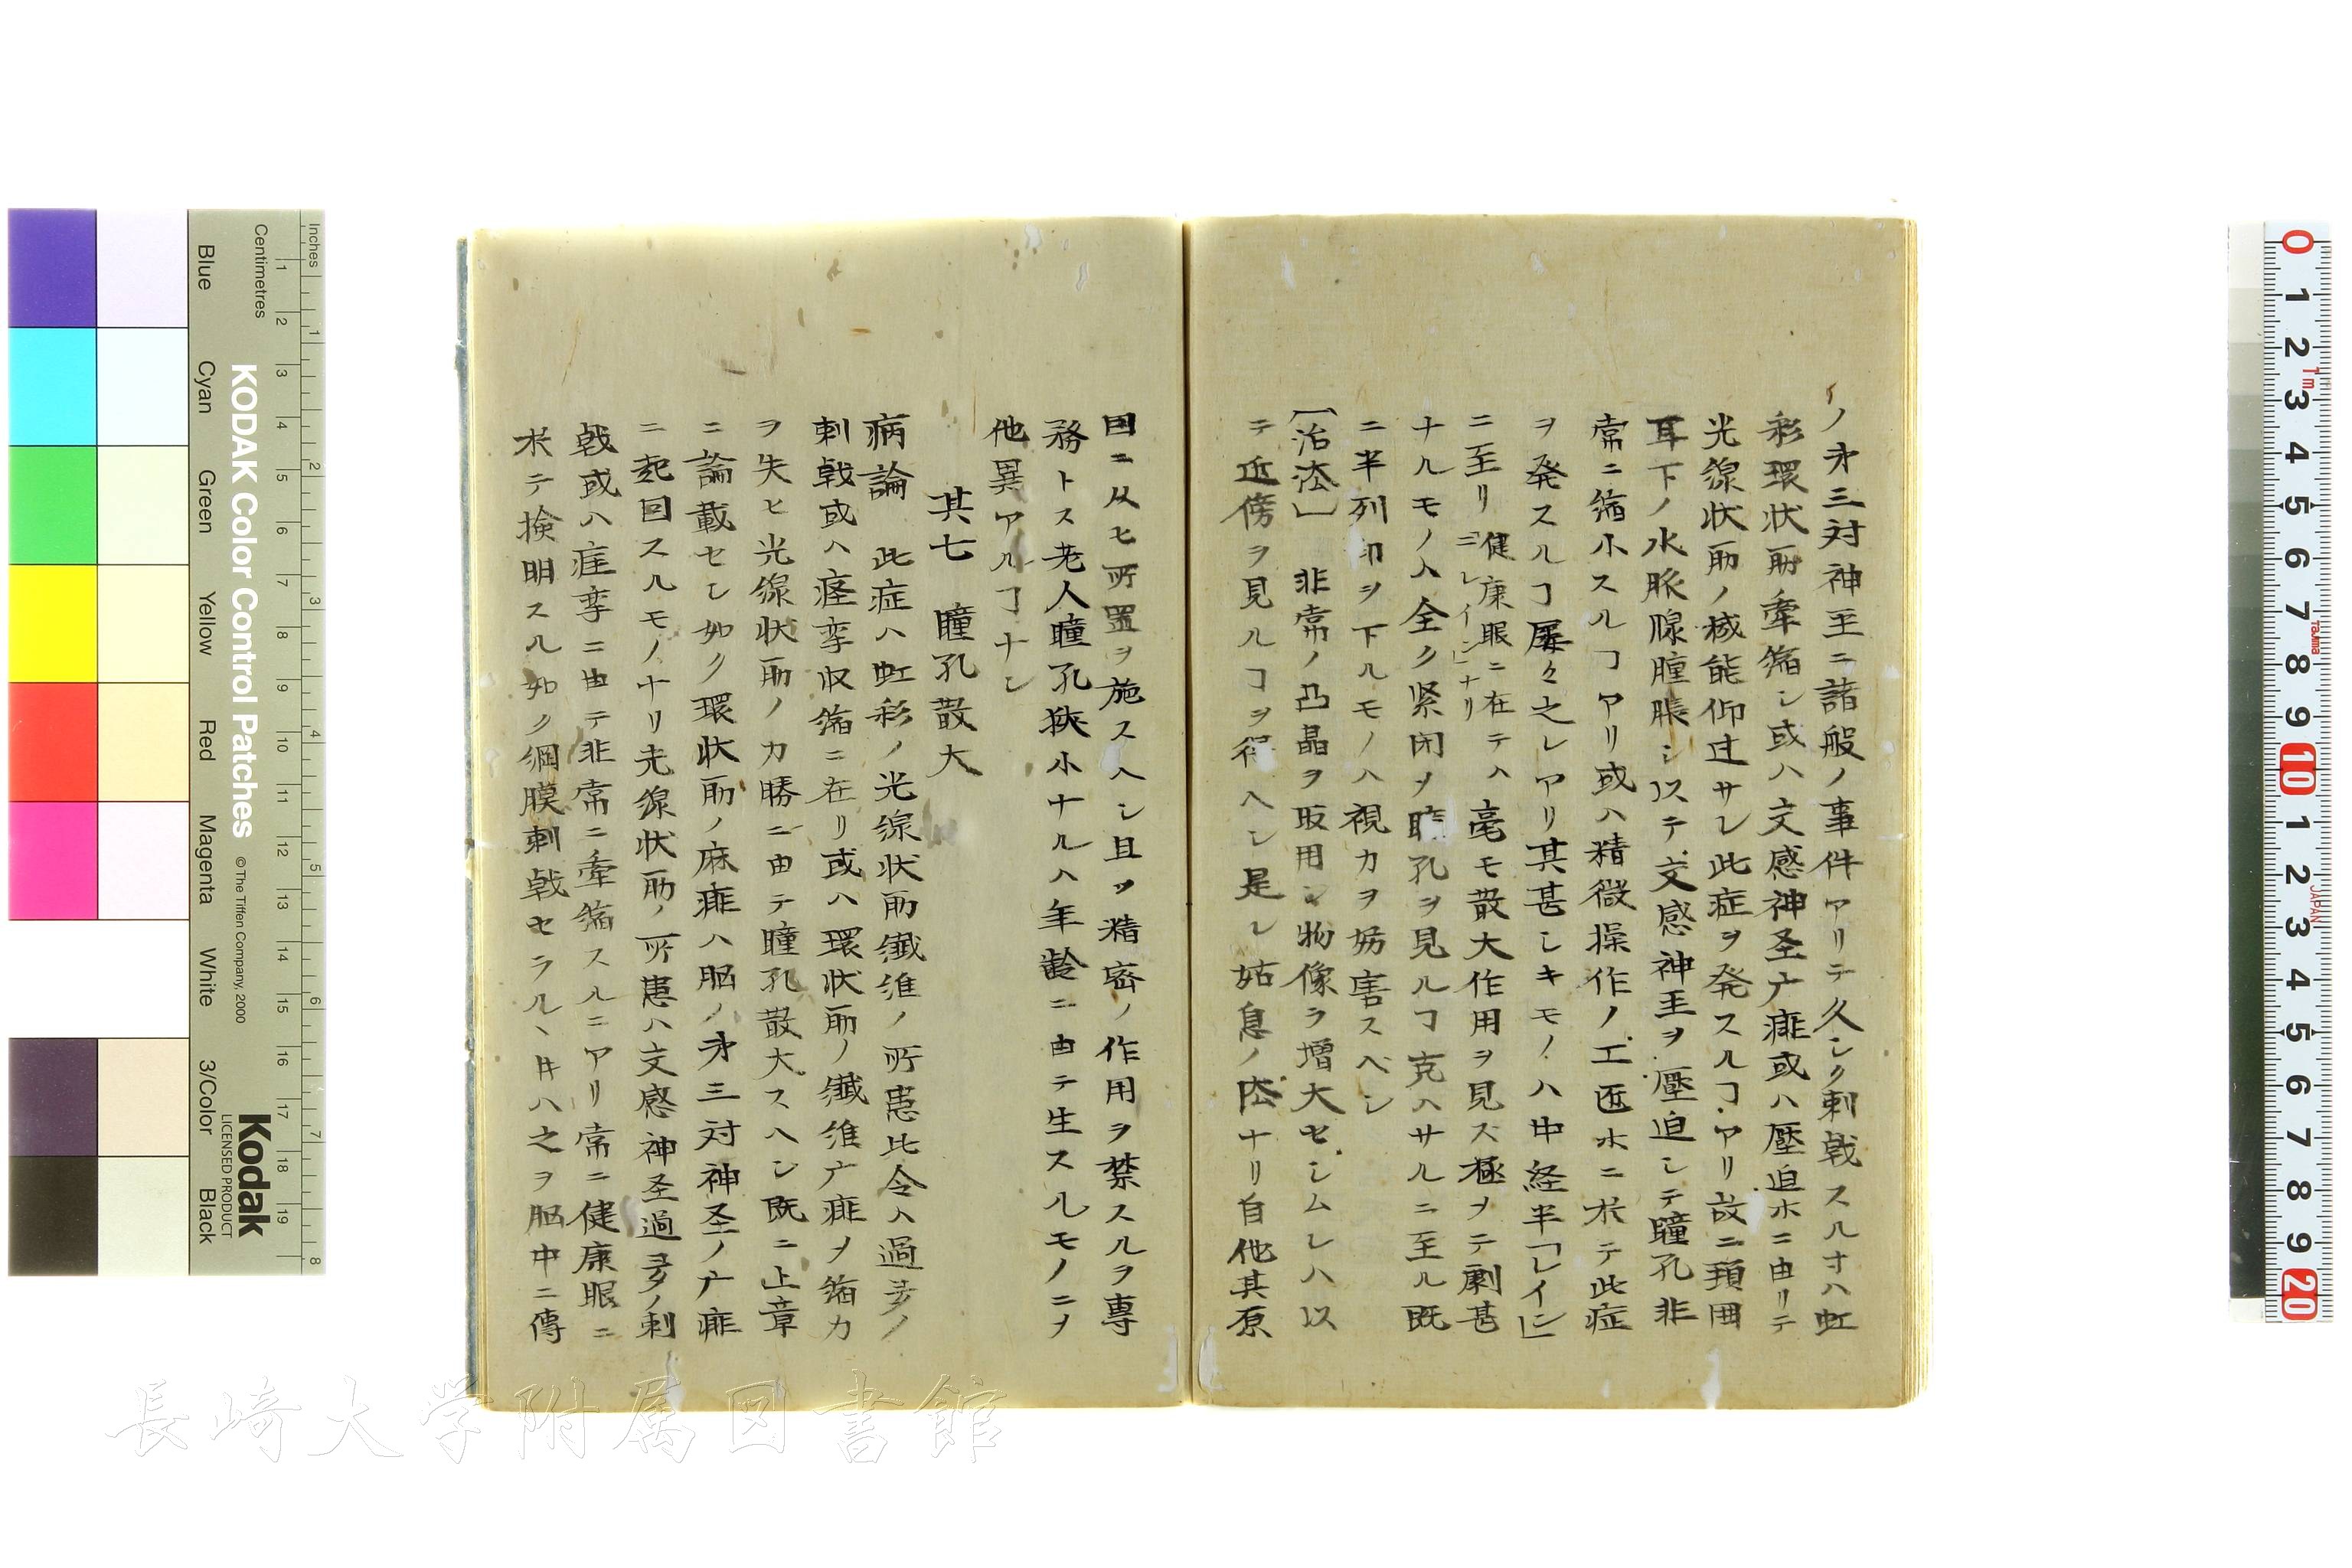 ノ㐧三対神圣ニ諸般ノ事件アリテ久シク刺戟スルヿハ虹
彩環状筋牽縮シ或ハ交感神圣亡痱或ハ壓迫ホニ由リテ
光線状筋ノ機能仰辻サレ此症ヲ発スルヿアリ故ニ頚囲
耳下ノ水脈腺腫脹シ以テ交感神圣ヲ壓迫シテ瞳孔非
常ニ縮小スルヿアリ或ハ精微操作ノ工匠ホニ於テ此症
ヲ発スルヿ屡々之レアリ其甚シキモノハ中経半「レイン」
ニ至リ 健康眼ニ在テハ三「レイン」ナリ 毫モ散大作用ヲ見ス極メテ劇甚
ナルモノハ全ク緊閉メ瞳孔ヲ見ルヿ克ハサルニ至ル既
ニ半列印ヲ下ルモノハ視力ヲ妨害スベシ
〔治法〕 非常ノ凸晶ヲ取用シ物像ヲ増大セシムレハ以
テ近傍ヲ見ルヿヲ得ヘシ是レ姑息ノ法ナリ自他其原
因ニ从ヒ所置ヲ施スヘシ且ツ精密ノ作用ヲ禁スルヲ専
務トス老人瞳孔狭小ナルハ年齢ニ由テ生スルモノニヲ
他異アルヿナシ
其七 瞳孔散大
病論 此症ハ虹彩ノ光線状筋纎維ノ所患比令ハ過多ノ
刺戟或ハ痙挛収縮ニ在リ或ハ環状筋ノ纎維亡痱メ縮力
ヲ失ヒ光線状筋ノ力勝ニ由テ瞳孔散大スヘシ既ニ上章
ニ論載セシ如ク環状筋ノ麻痱ハ脳ノ㐧三対神圣ノ亡痱
ニ起因スルモノナリ光線状筋ノ所患ハ交感神圣過多ノ刺
戟或ハ痙挛ニ由テ非常ニ牽縮スルニアリ常ニ健康眼ニ
於テ検明スル如ク網膜刺戟セラル丶ヰハ之ヲ脳中ニ傳
KODAK Color Control Patches
© The Tiffen Company, 2000
Kodak
LICENSED PRODUCT
Inches
Centimetres
Blue
Cyan
Green
Yellow
Red
Magenta
White
3/Color
Black
1 2 3 4 5 6 7 8 9 10 11 12 13 14 15 16 17 18 19
1 2 3 4 5 6 7 8
0 1 2 3 4 5 6 7 8 9 10 1 2 3 4 5 6 7 8 9 20
Tajima
JAPAN
長崎大学附属図書館